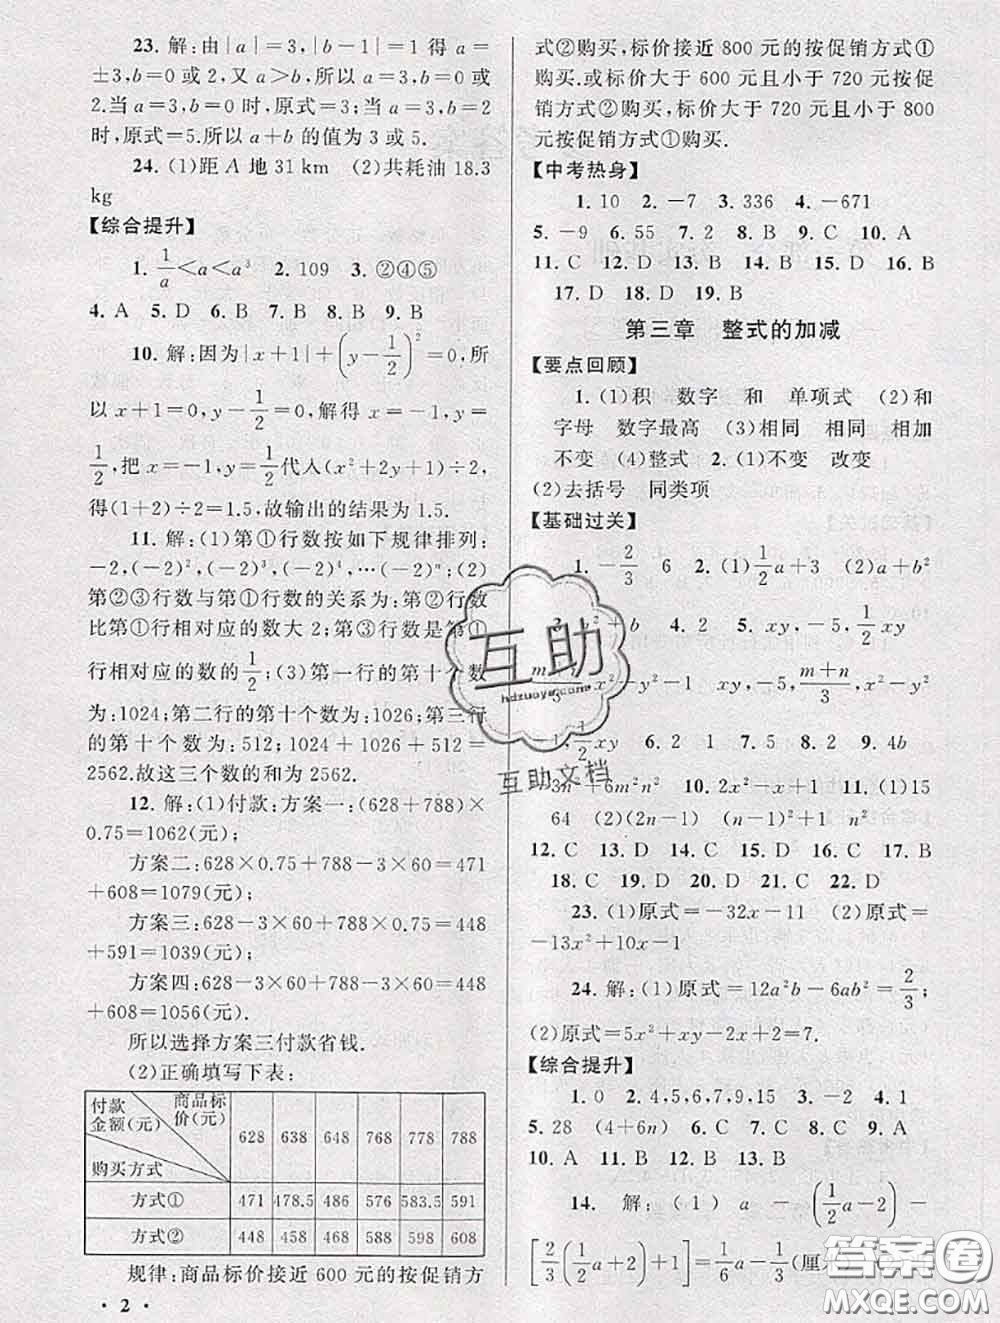 23. 解:由|a|=3,|b-1|=1 得 a=
±3,b=0 或 2,又 a>b,所以 a=3,b=0 或
2.当 a=3,b=0 时,原式=3;当 a=3,b=2
时,原式=5.所以 a+b 的值为 3 或 5.
24. (1)距 A 地 31 km (2)共耗油 18.3
kg
【综合提升】
1. 1/a<a<a³ 2. 109 3. ②④⑤
4. A 5. D 6. B 7. B 8. B 9. B
10. 解:因为|x+1|+(y-1/2)²=0,所
以 x+1=0,y-1/2=0,解得 x=-1,y=
1/2,把 x=-1,y=1/2代人(x²+2y+1)÷2,
得(1+2)÷2=1.5,故输出的结果为 1.5.
11. 解:(1)第①行数按如下规律排列:
-2,(-2)²,(-2)³,(-2)⁴,…(-2)ⁿ;(2)
第②③行数与第①行数的关系为:第②行数
比第①行相对应的数大 2;第③行数是第①
行相对应的数的1/2;(3)第一行的第十个数
为:1024;第二行的第十个数为:1026;第三行
的第十个数为:512;1024+1026+512=
2562.故这三个数的和为 2562.
12. 解:(1)付款:方案一:(628+788)×
0.75=1062(元);
方案二:628×0.75+788-3×60=471
+608=1079(元);
方案三:628-3×60+788×0.75=448
+591=1039(元);
方案四:628-3×60+788-3×60=448
+608=1056(元).
所以选择方案三付款省钱.
(2)正确填写下表:
付款金额(元) 商品标价(元) 购买方式 628 638 648 768 778 788
方式① 471 478.5 486 576 583.5 591
方式② 448 458 468 588 598 608
规律:商品标价接近 600 元的按促销方
· 2 ·
式②购买,标价接近 800 元的按促销方式①
购买.或标价大于 600 元且小于 720 元按促
销方式②购买,标价大于 720 元且小于 800
元按促销方式①购买.
【中考热身】
1. 10 2. -7 3. 336 4. -671
5. -9 6. 55 7. 2 8. C 9. D 10. A
11. C 12. D 13. B 14. B 15. D 16. D
17. D 18. D 19. B
第三章 整式的加减
【要点回顾】
1. (1)积 数字 和 单项式 (2)和
字母 数字最高 (3)相同 相同 相加
不变 (4)整式 2. (1)不变 改变
(2)去括号 同类项
【基础过关】
1. -2/3 6 2. (1)1/2a+3 (2)a+b²
b²+b 4. 2 5. xy,-1/2xy
x²-y²-1 xy,-5,(m+n)/3,x²-y²
-1,1/2xy 6. 2 1 7. 5 8. 2 9. 4b
-3n²+6m²n² 10. 2x²-x+1 11. (1)15
64 (2)(2n-1) (n-1)²+1 n²
12. C 13. C 14. B 15. C 16. C 17. B
18. C 19. D 20. D 21. C 22. D
23. (1)原式=-32x-11 (2)原式=
-13x²+10x-1
24. 解:(1)原式=12a²b-6ab²=2/3;
(2)原式=5x²+xy-2x+2=7.
【综合提升】
1. 0 2. 4,5,6,7,9,15 3. -2 4. 1
5. 28 (4+6n) 6. C 7. C 8. C 9. A
10. A 11. B 12. B 13. B
14. 解:(1) a-(1/2a-2)-
[2/3(1/2a+2)+1]=1/6a-1/3(厘米)
互助
hdzuoye.com
互助文档
答案圈
MXQE.COM